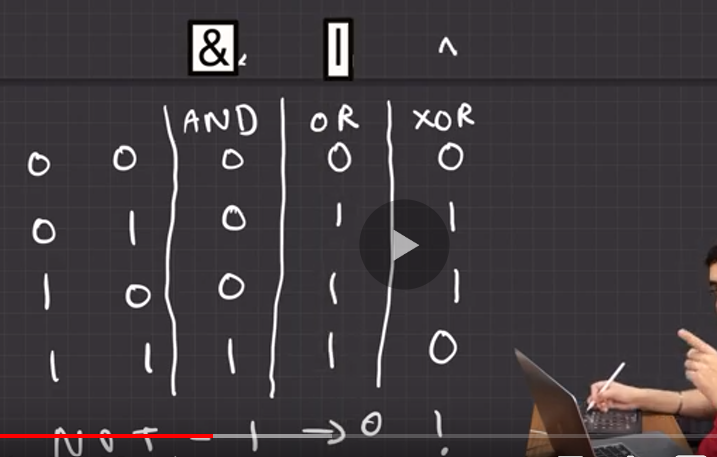 & | ^
AND OR XOR
0 0 0 0 0
0 1 0 1 1
1 0 0 1 1
1 1 1 1 0
NOT - 1 → 0 !